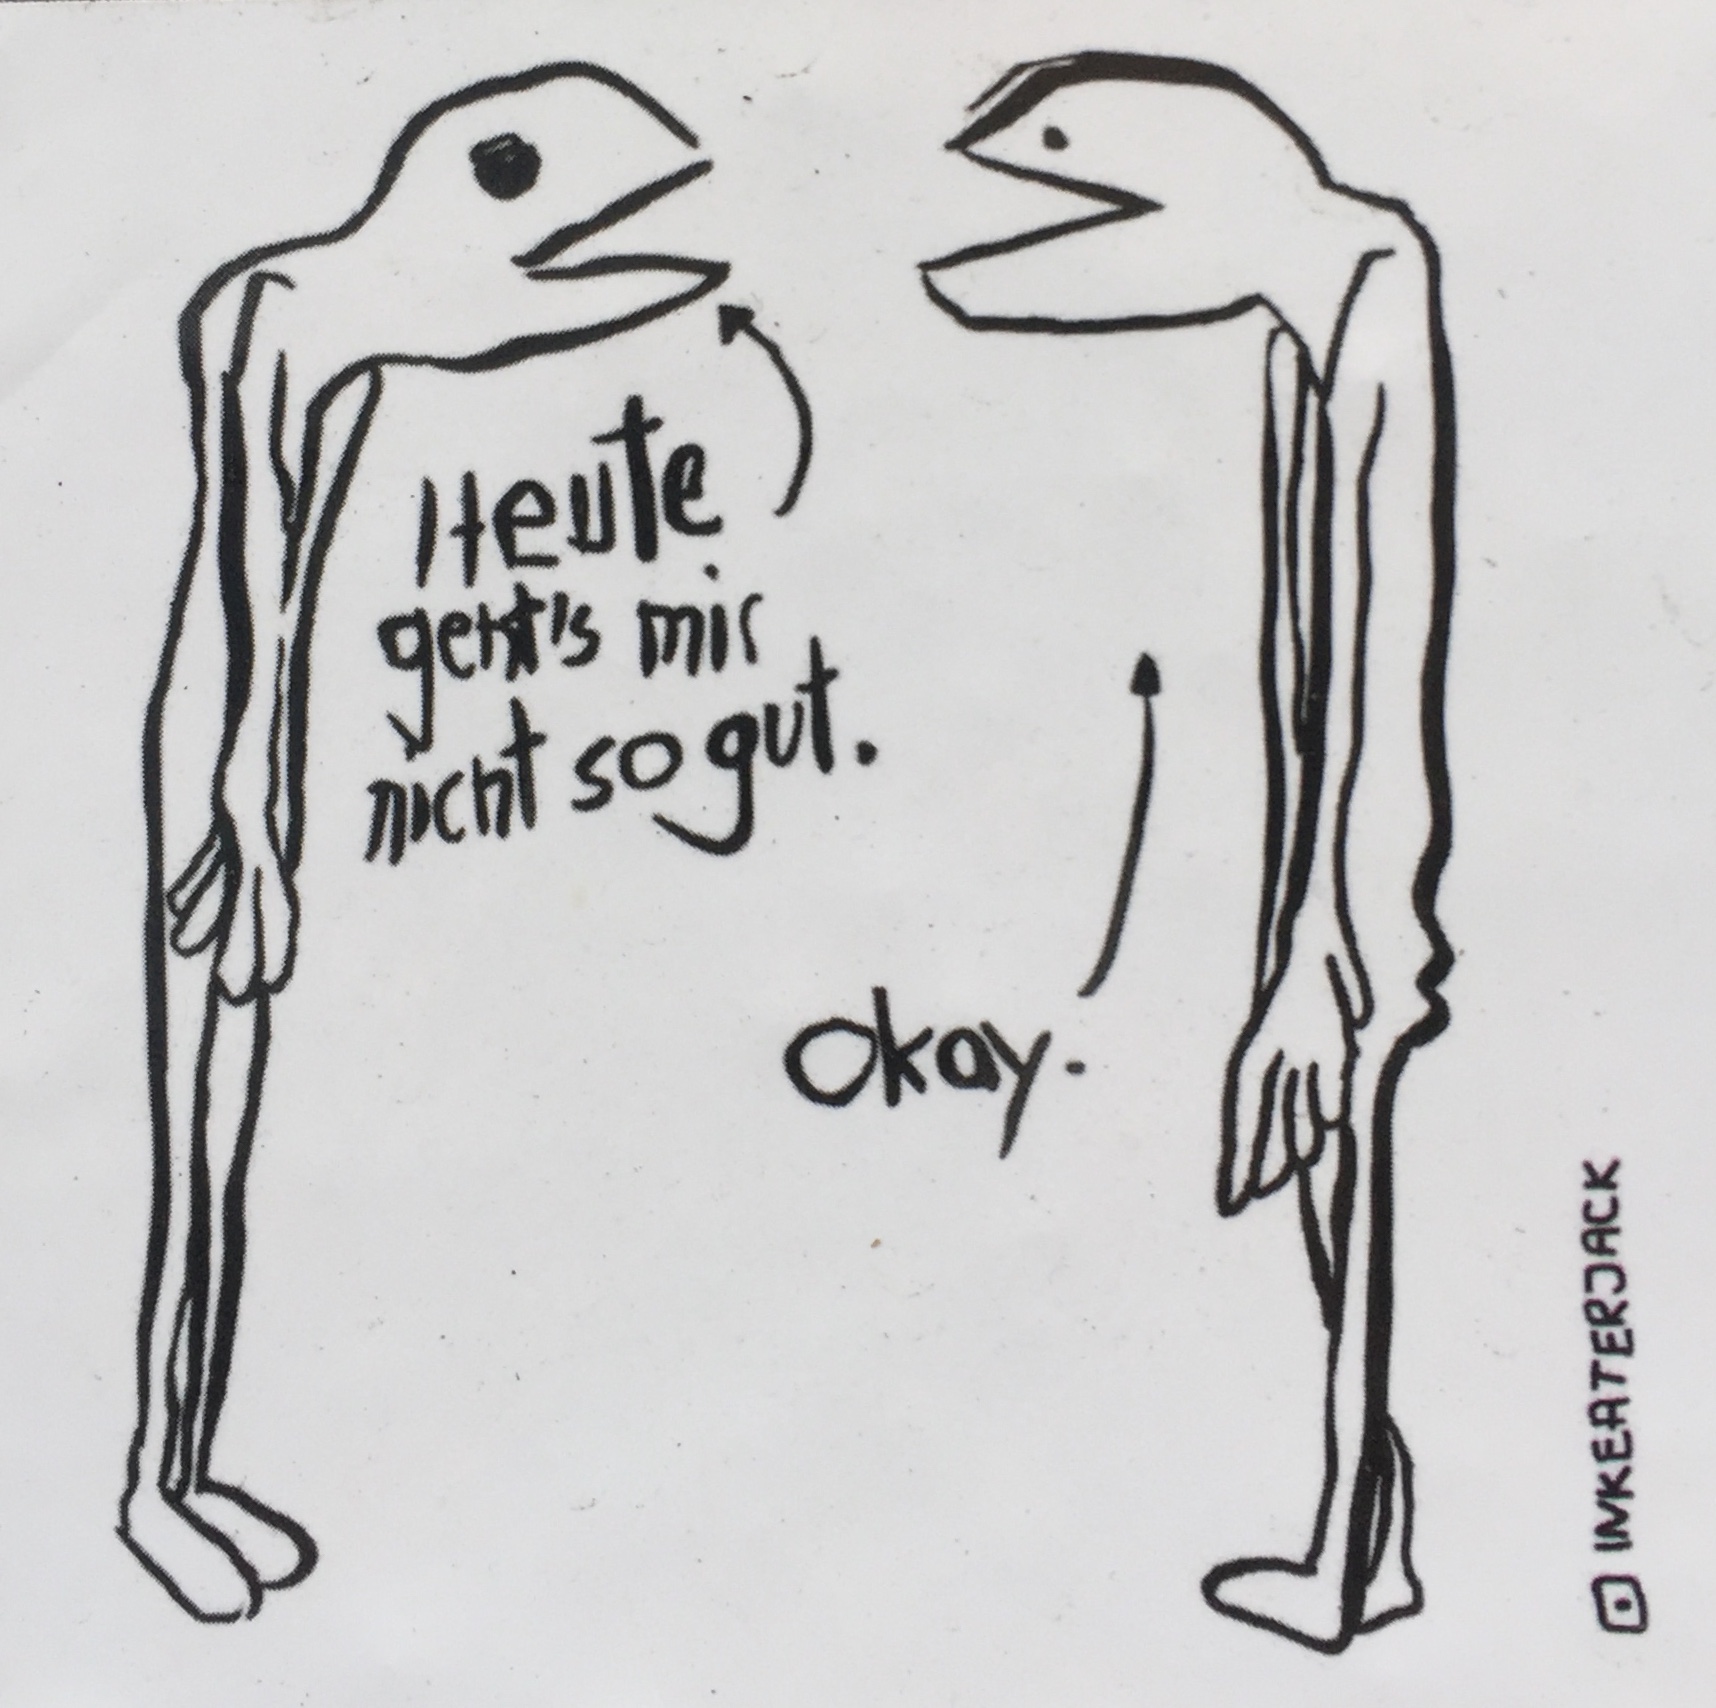 Heute
geht's mir
nicht so gut.
Okay.
INKEATERJACK